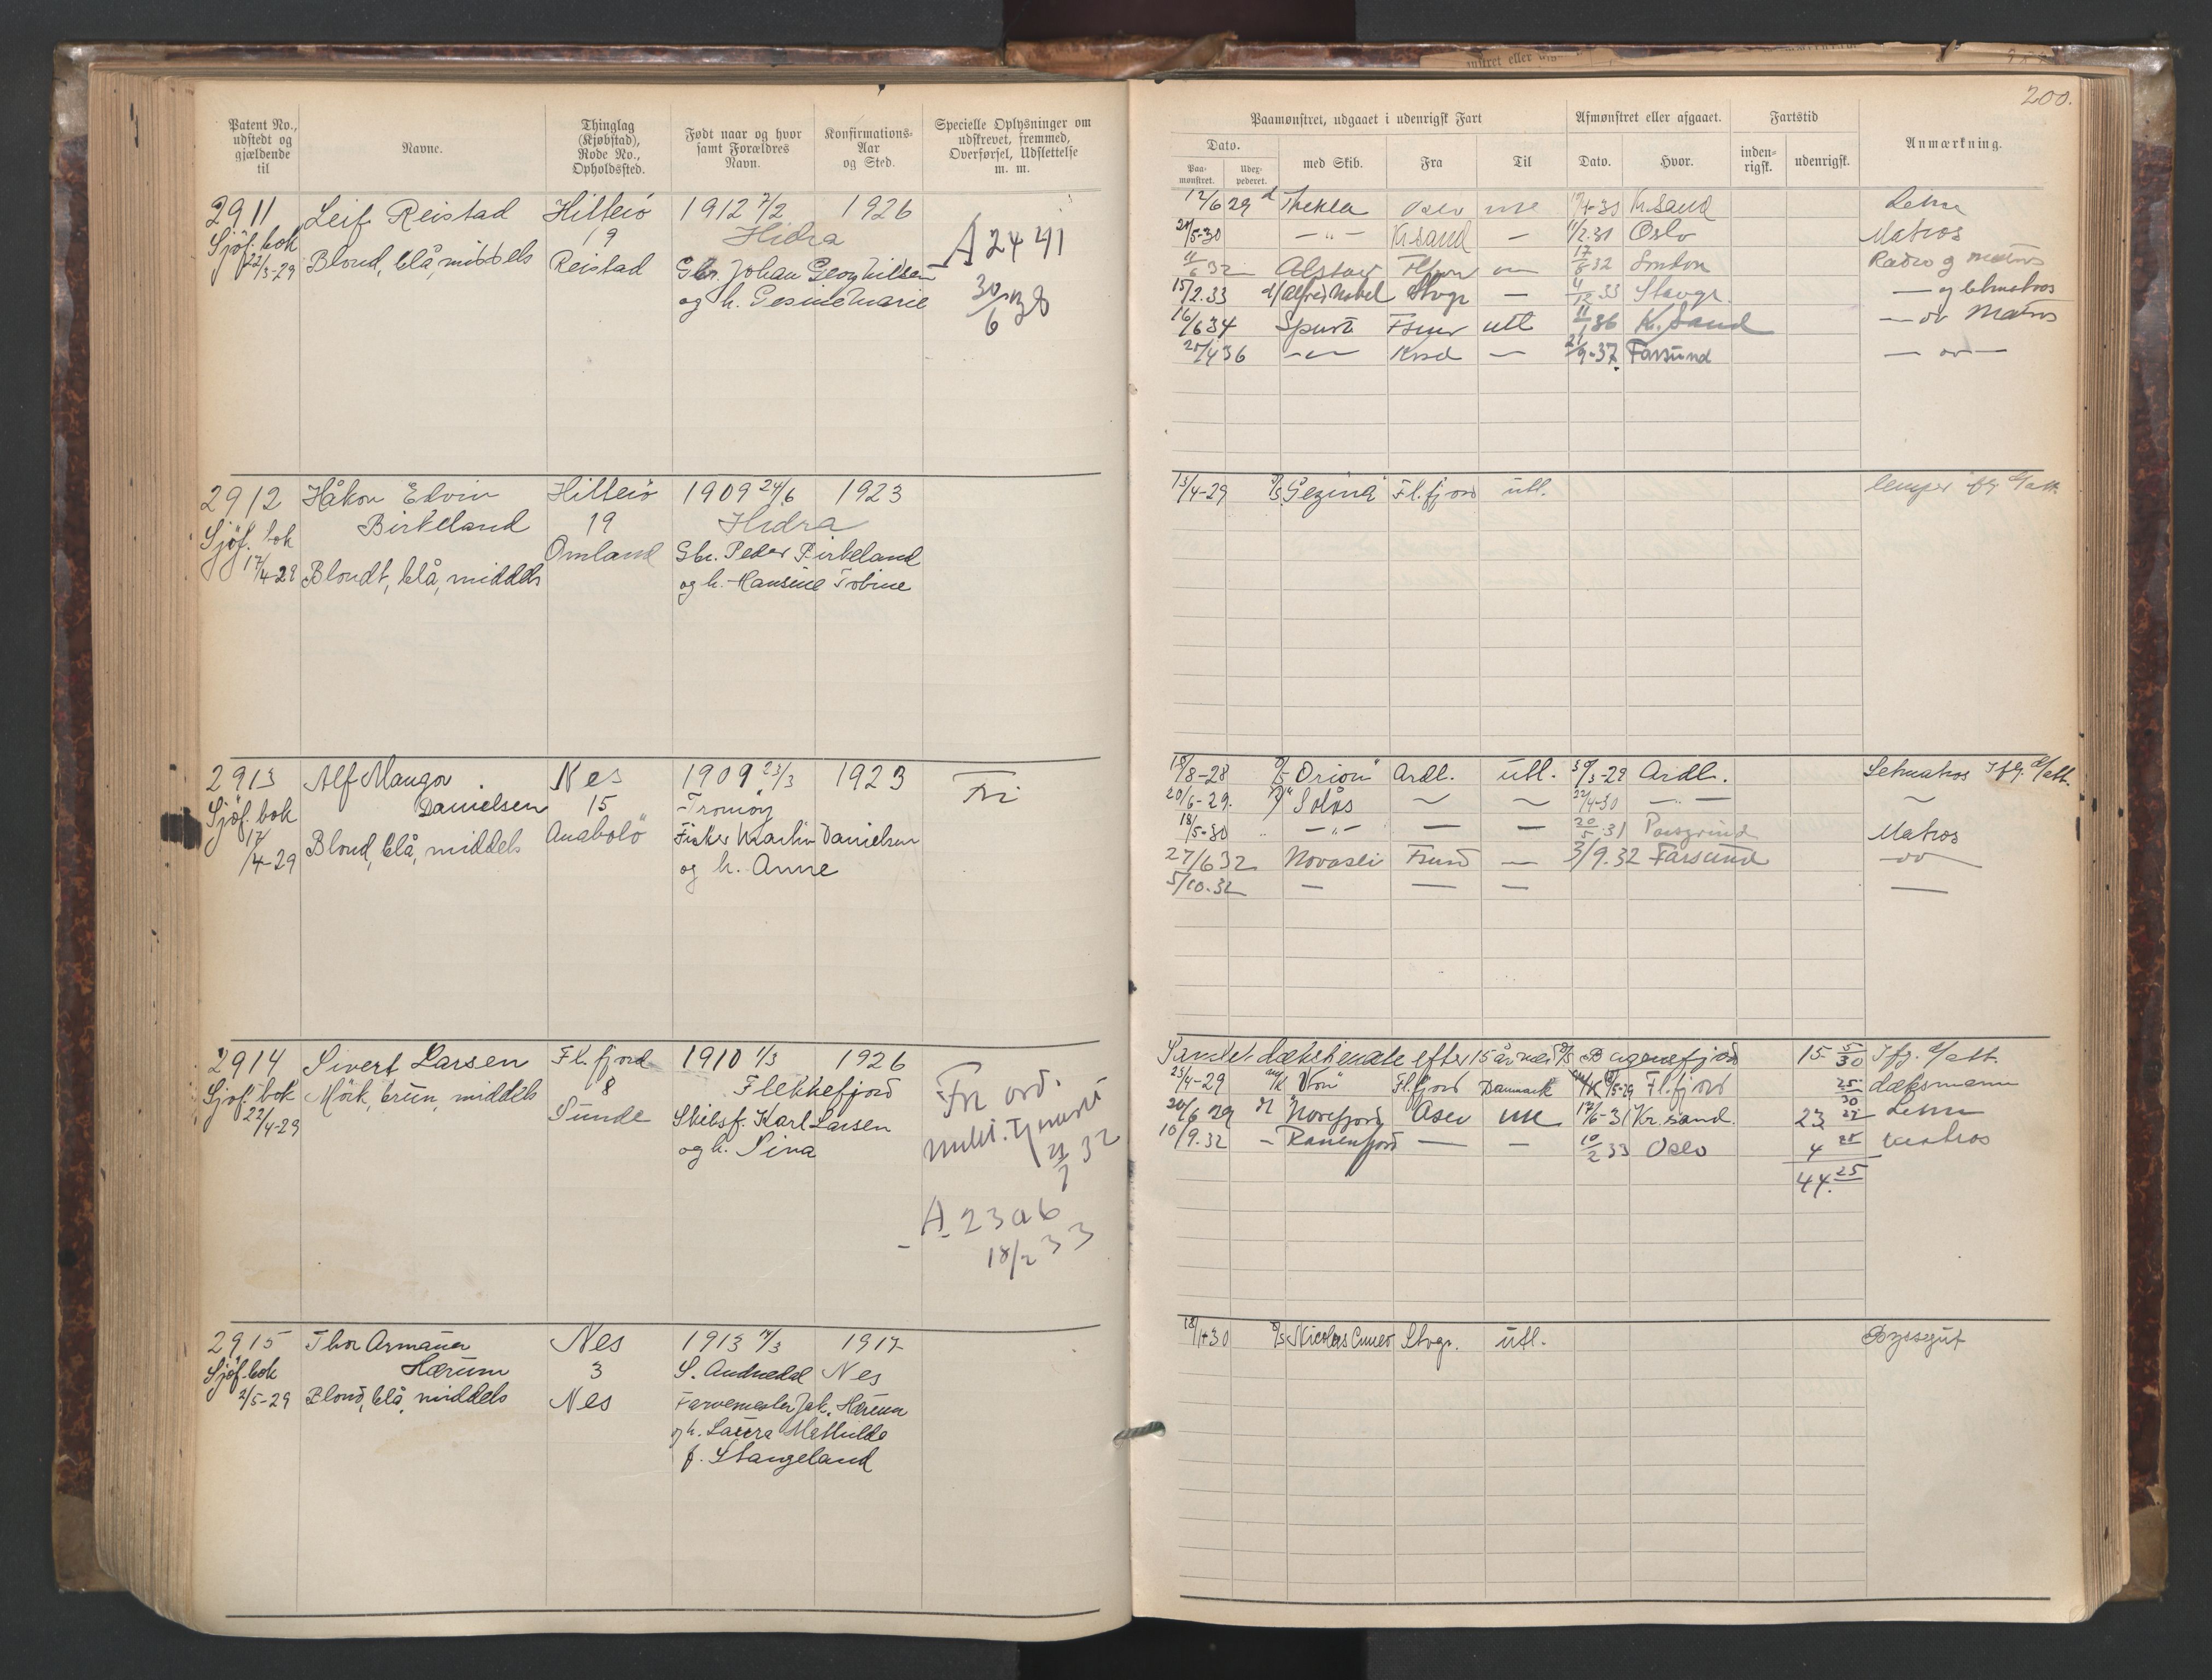 200.
Patent No., udstedt og gjældende til
Navne.
Thinglag (Kjøbstad), Rode No., Opholdssted.
Født naar og hvor samt Forældres Navn.
Konfirmations-Aar og Sted.
Specielle Oplysninger om udskrevet, fremmed, Overførsel, Udslettelse m. m.
Paamønstret, udgaaet i udenrigsk Fart
Afmønstret eller afgaaet.
Fartstid
Anmærkning.
Dato.
med Skib.
Fra
Til
Dato.
Hvor.
inden-rigsk.
udenrigsk.
Paa-mønstret.
Udex-pederet.
2911 Leif Reistad Hitterö 1912 7/2 1926
Sjöf. bok 19 Hidra A 2441
22/3-29 Blond, blå, middels Reistad Gbr. Johan Georg Nilsen
og h. Gesine Marie 30/6 38
12/6 29 d Thekla Oslo utl 30 Kr.sand Letm
21/5-30 — " — Kr.sand — 11/2.31 Oslo Matros
11/6 32 17/8 32 London
15/2.33 d/ Alfred Nobel Stvgr — 4/12 33 Stavgr. — og letmatros
16/6 34 Spurt Fsund utl 11/1 36 Kr. Sand — do Matros
25/4 36 — Krsd — 21/9-37. Farsund — do —
2912 Håkon Edvin Hitterö 1909 24/6 1923
Birkeland 19 Hidra
Sjöf. bok Omland Gbr. Peder Birkeland
17/4-29 Blondt, blå, middels og h. Hansine Tobine
13/4-29 D/S "Gezina" Fl.fjord utl. lemper ifg. d/att.
2913 Alf Mangor Nes 1909 23/3 1923 Fri
Sjöf. bok Danielsen 15 Tromöy
17/4-29 Blond, blå, middels Anabelö Fisker Martin Danielsen
og h. Anne
18/8-28 D/S "Orion" Ardl. utl. 30/3-29 Ardl. Letmatros Ifg. d/att.
20/6-29. "Solös 22/4-30 — " —
18/5-30 — " — — — 20/5 31 Porsgrund Matros
27/6 32 Fsund — 3/9.32 Farsund — do —
5/10.32 — — — —
2914 Sivert Larsen Fl.fjord 1910 1/3 1926
Sjöf. bok Mörk, brun, middels 8 Flekkefjord Fri ord.
22/4-29 Sunde Skibsf. Karl Larsen milit. tjeneste
og h. Sina 21/7 32
A. 2306
18/2 33
Samlet dækstjeneste efter 15 år med D/S 15 5/30 Ifg. d/att.
23/4-29 M/K Fl.fjord Danmark /5-29 Fl.fjord 25/30 dæksmann
20/6 29 M Norefjord Oslo utl 17/6-31 Kr.sand. 23 Letm
10/9.32 — Ranenfjord — — 10/2 33 Oslo 4 25 matros
44. 25
2915 Thor Armauer Nes 1913 1917
Sjöf. bok Hærum 3 S. Audnedal Nes
2/5-29 Blond, blå, middels Nes Farvemester Jak. Hærum
og h. Laura Mathilde
f. Stangeland
18/1 30 D/S Nicolas Cuneo Stvgr. utl. Byssegut